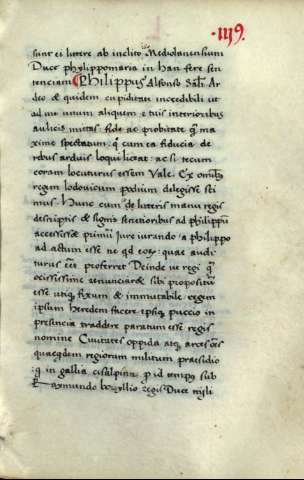 119.
sunt ei littere ab inclito Mediolanensium
Duce phylippomaria in han fere sen
tenciam Philippus Alfonso Salt Ar
deo & quidem cupiditate incredibili ut
ad me unum aliquem e tuis interioribus
aulicis mittas fide ac probitate q̃ ma
xime spectatum q̃ cum ea fiducia de
rebus arduis loqui liceat ac si tecum
coram locuturus essem Vale Ex omĩbus
regem lodovicum podium delegisse sci
mus Hunc cum de litteris manu regis
descriptis & signis secretioribus ad philippũ
accessisse primũ iure iurando a philippo
ad actum esse ne qd eorum quae audi
turus eēt proferret Deinde ut regi q̃
ocissime renunciaret sibi propositũ
esse utiq fixum & immutabile regem
ipsum heredem facere ipsiq puccio in
presencia traddere paratum esse regis
nomine Civitates oppida atq arces oẽs
quaeqdem regiorum militum praesidio
q̃ in gallia cisalpina p id tempus sub
Raymundo boyllio regis Duce mili